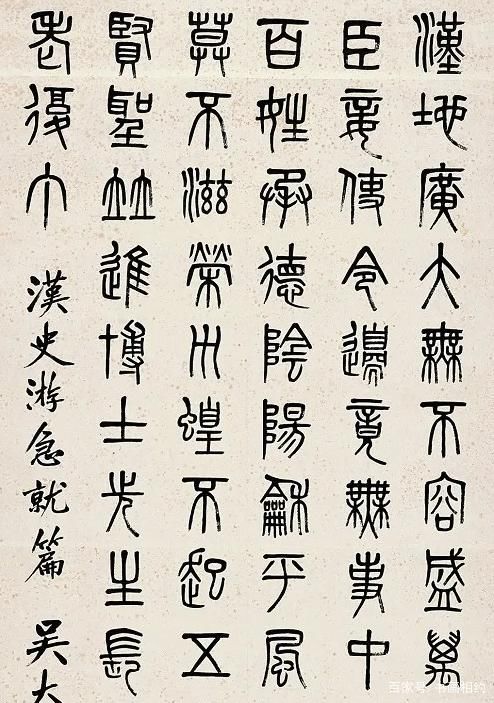 漢地廣大無不容盛萬
臣妾使令邊竟無事中
百姓承德陰陽龢平風
莫不滋榮災蝗不起五
賢聖並進博士先生長
老復丁
漢史游急就篇
吳大
百家号/书画相约